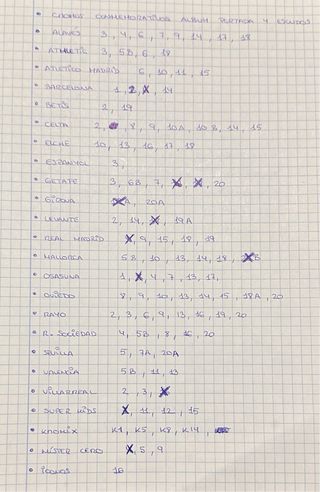 • CROMOS CONMEMORATIVOS ALBUM PORTADA Y ESCUDOS
• ALAVES 3, 4, 6, 7, 9, 14, 17, 18
• ATHLETIC 3, 5B, 6, 18
• ATLETICO MADRID 6, 10, 11, 15
• BARCELONA 1, 2, 14
• BETIS 2, 19
• CELTA 2, 8, 9, 10A, 10B, 14, 15
• ELCHE 10, 13, 16, 17, 18
• ESPANYOL 3,
• GETAFE 3, 6B, 7, 20
• GIRONA 20A
• LEVANTE 2, 14, 19A
• REAL MADRID 9, 15, 18, 19
• MALLORCA 5B, 10, 13, 14, 18,
• OSASUNA 1, 4, 7, 13, 17,
• OVIEDO 8, 9, 10, 13, 14, 15, 18A, 20
• RAYO 2, 3, 6, 9, 13, 16, 19, 20
• R. SOCIEDAD 4, 5B, 8, 16, 20
• SEVILLA 5, 7A, 20A
• VALENCIA 5B, 11, 13
• VILLARREAL 2, 3,
• SUPER KIDS 11, 12, 15
• KROMIX K1, K5, K8, K14,
• MISTER CERO 5, 9
• ICONOS 18